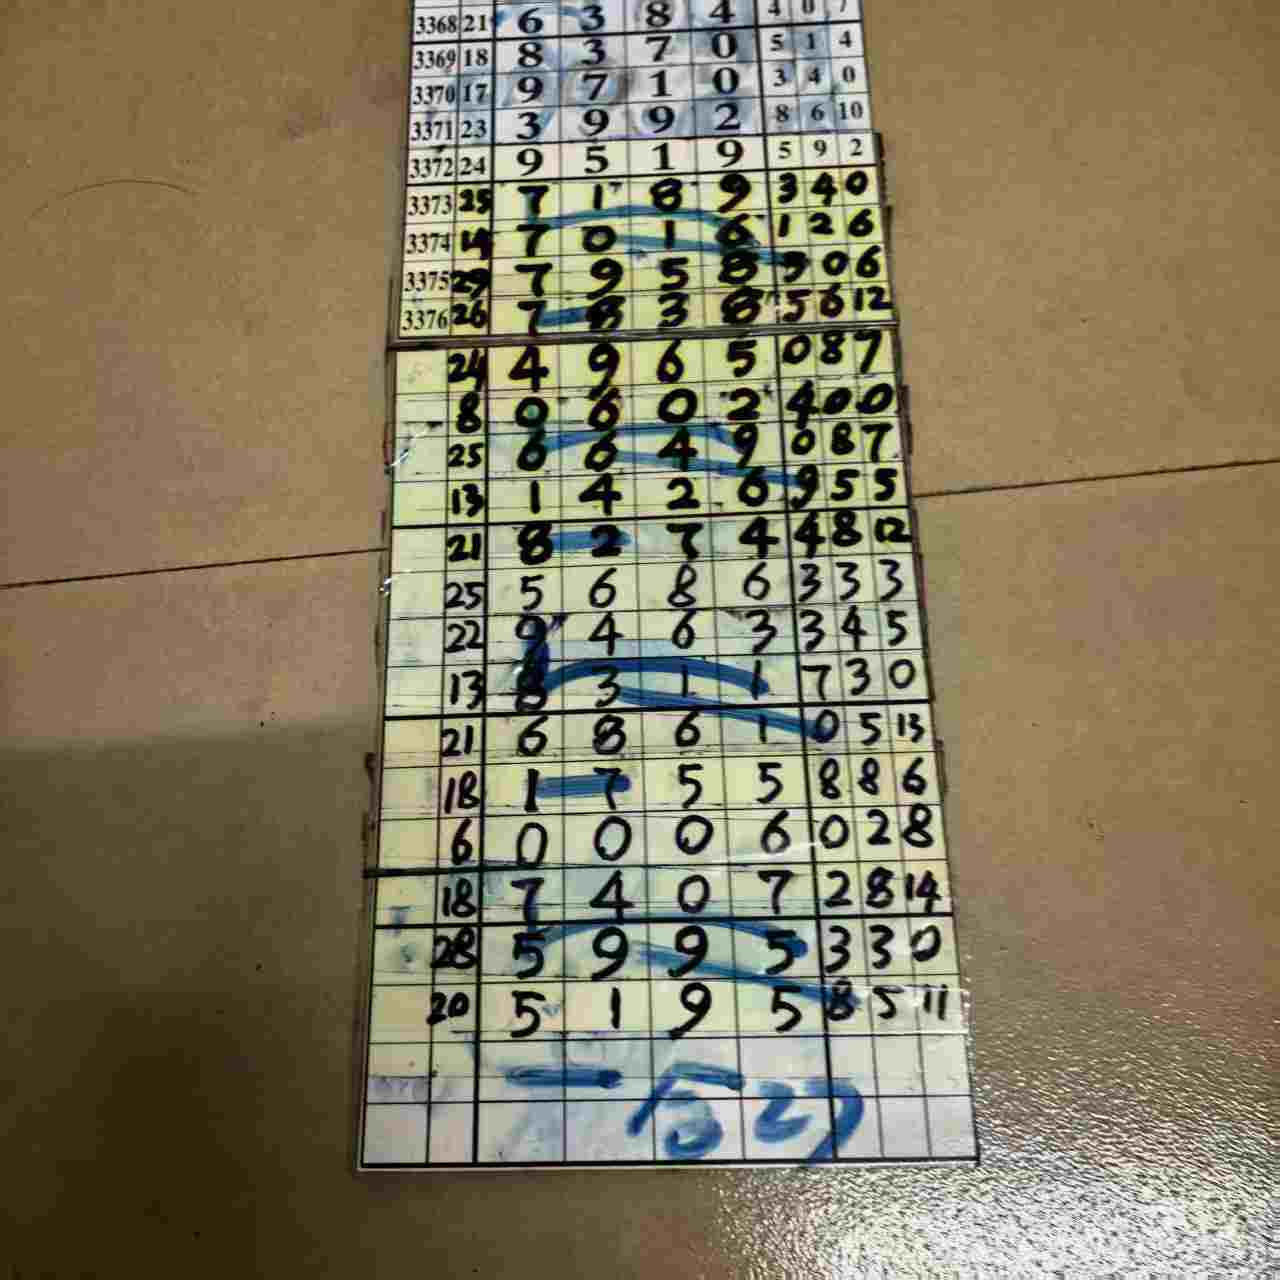 3368 21 6 3 8 4 4 0 7
3369 18 8 3 7 0 5 1 4
3370 17 9 7 1 0 3 4 0
3371 23 3 9 9 2 8 6 10
3372 24 9 5 1 9 5 9 2
3373 25 7 1 8 9 3 4 0
3374 14 7 0 1 6 1 2 6
3375 29 7 9 5 8 9 0 6
3376 26 7 8 3 8 5 6 12
24 4 9 6 5 0 8 7
8 0 6 0 2 4 0 0
25 6 6 4 9 0 8 7
13 1 4 2 6 9 5 5
21 8 2 7 4 4 8 12
25 5 6 8 6 3 3 3
22 9 4 6 3 3 4 5
13 8 3 1 1 7 3 0
21 6 8 6 1 0 5 13
18 1 7 5 5 8 8 6
6 0 0 0 6 0 2 8
18 7 4 0 7 2 8 14
28 5 9 9 5 3 3 0
20 5 1 9 5 8 5 11